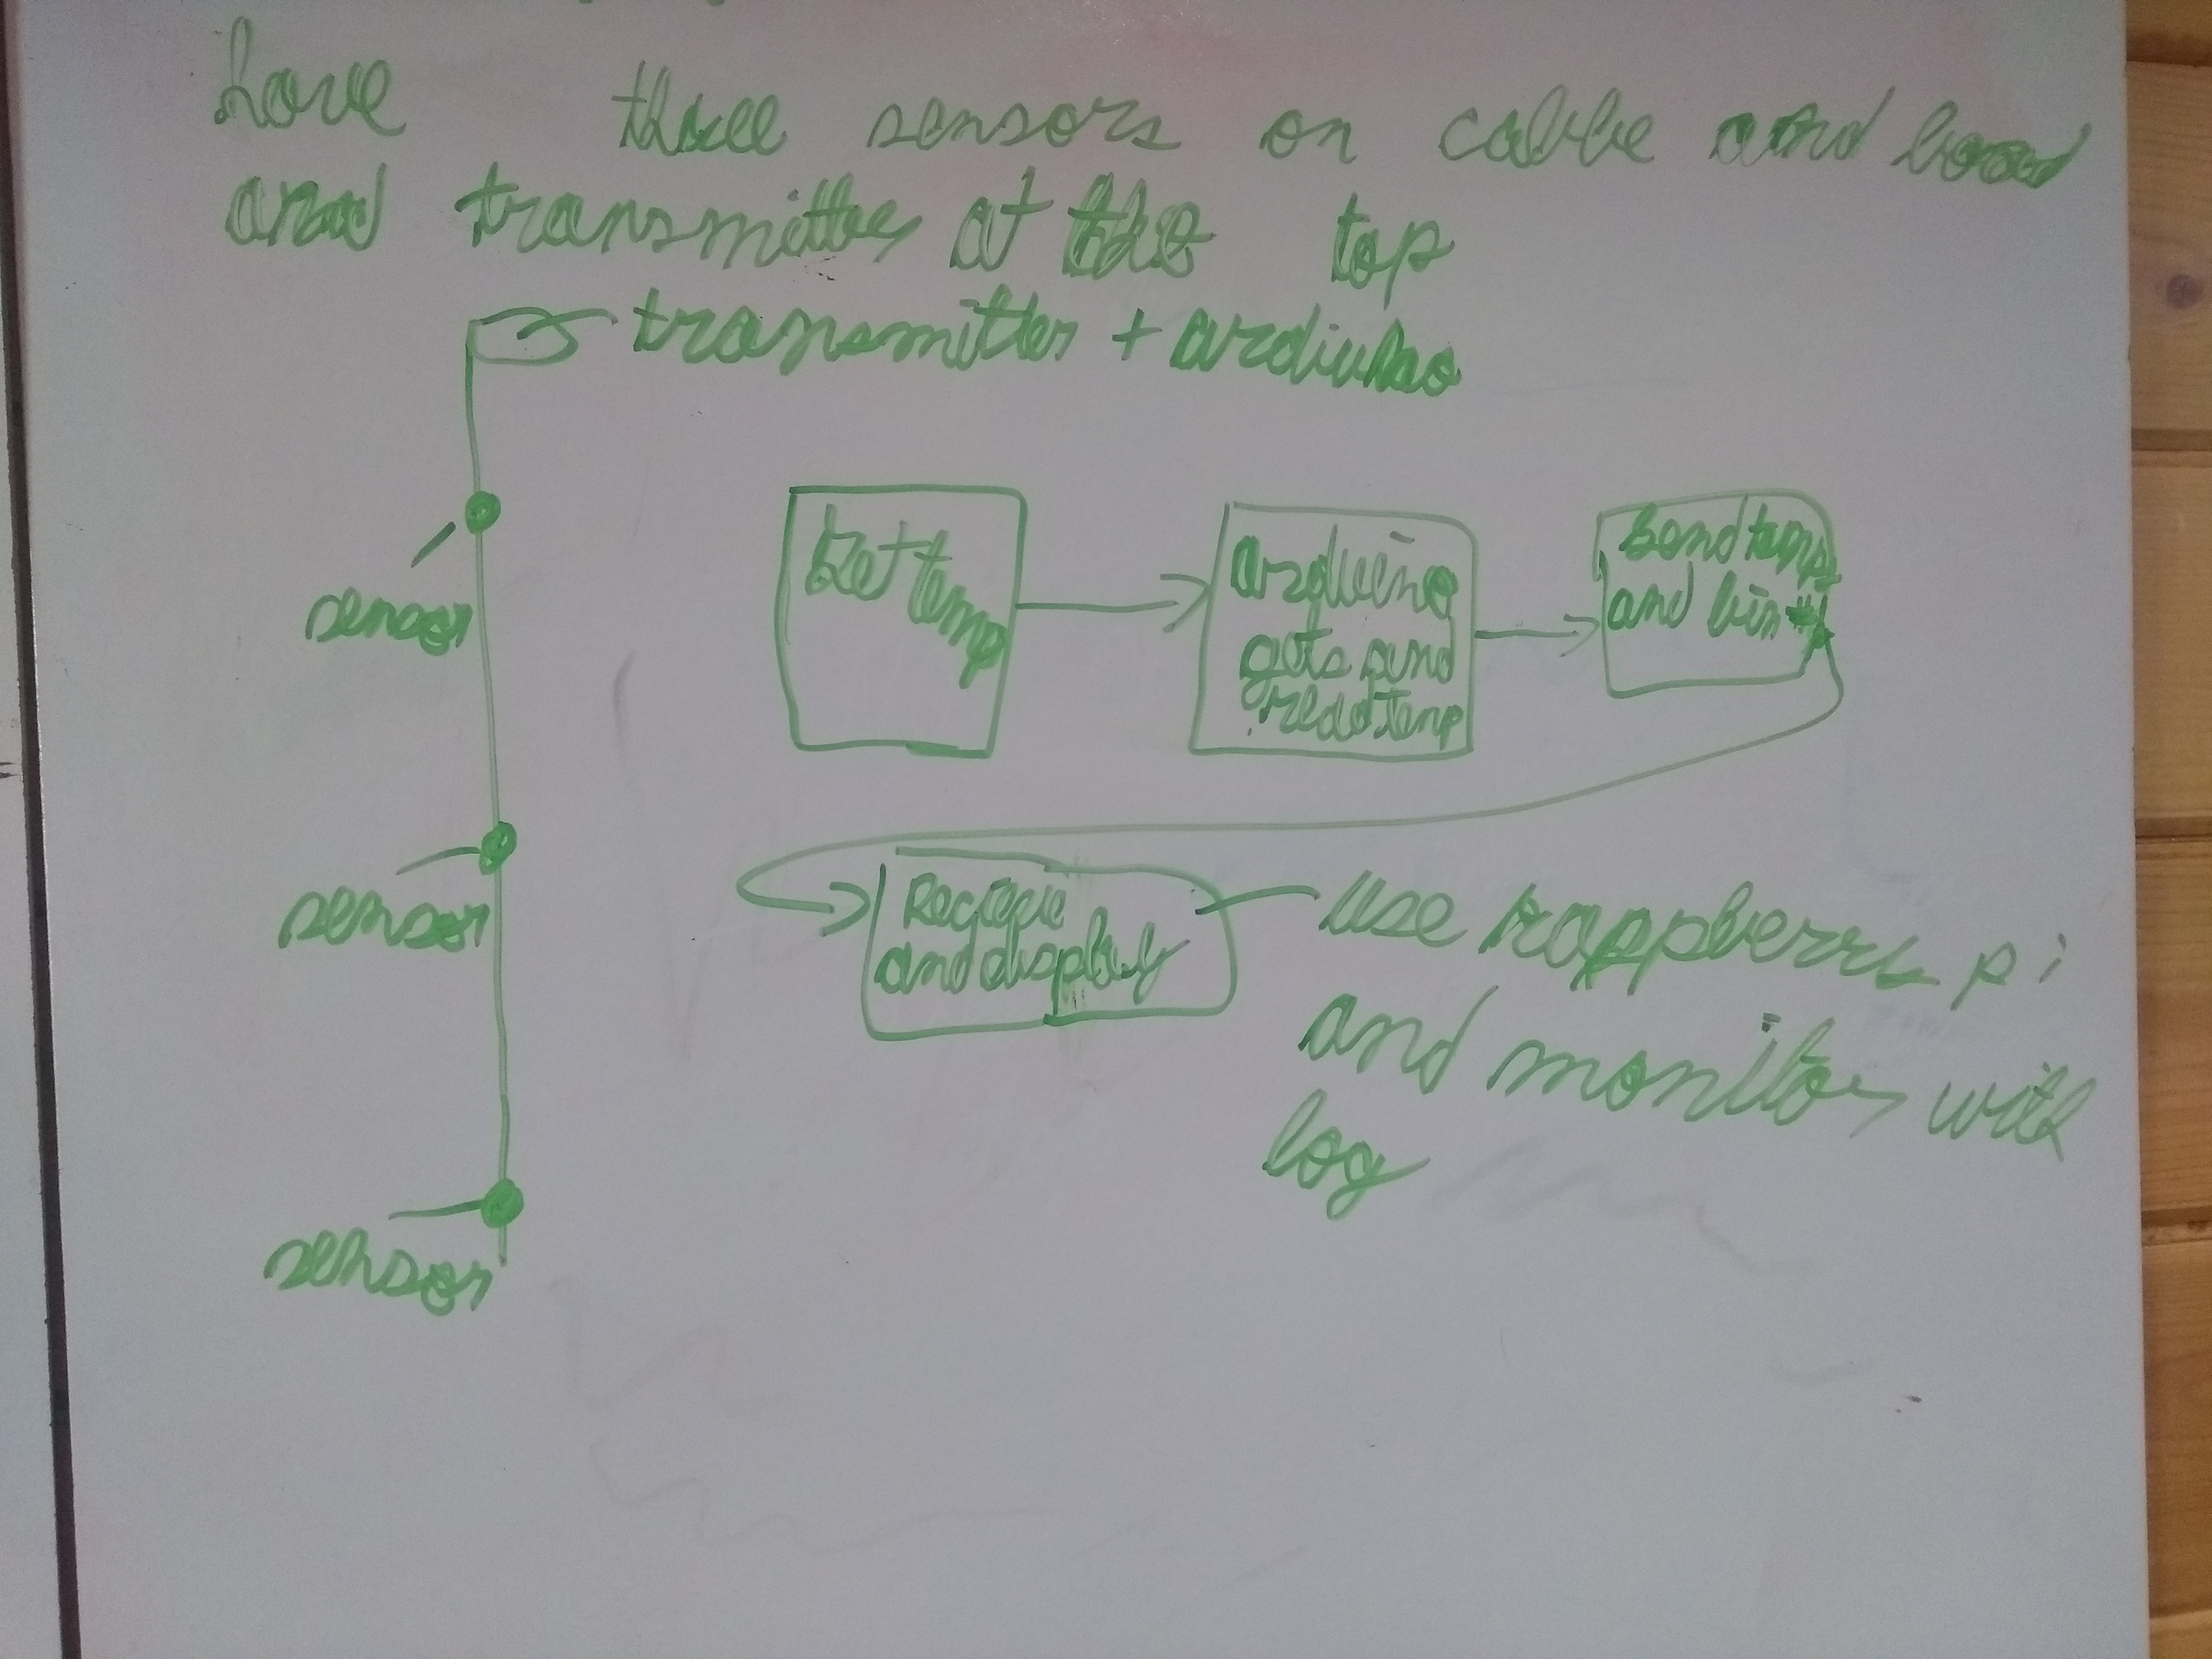 have three sensors on cable and board
and transmitter at the top
transmitter + ardiuno
sensor
sensor
sensor
Get temp
arduino
gets and
read temp
Send temp
and bin #
Recieve
and display
use rappberry pi
and monitor with
log